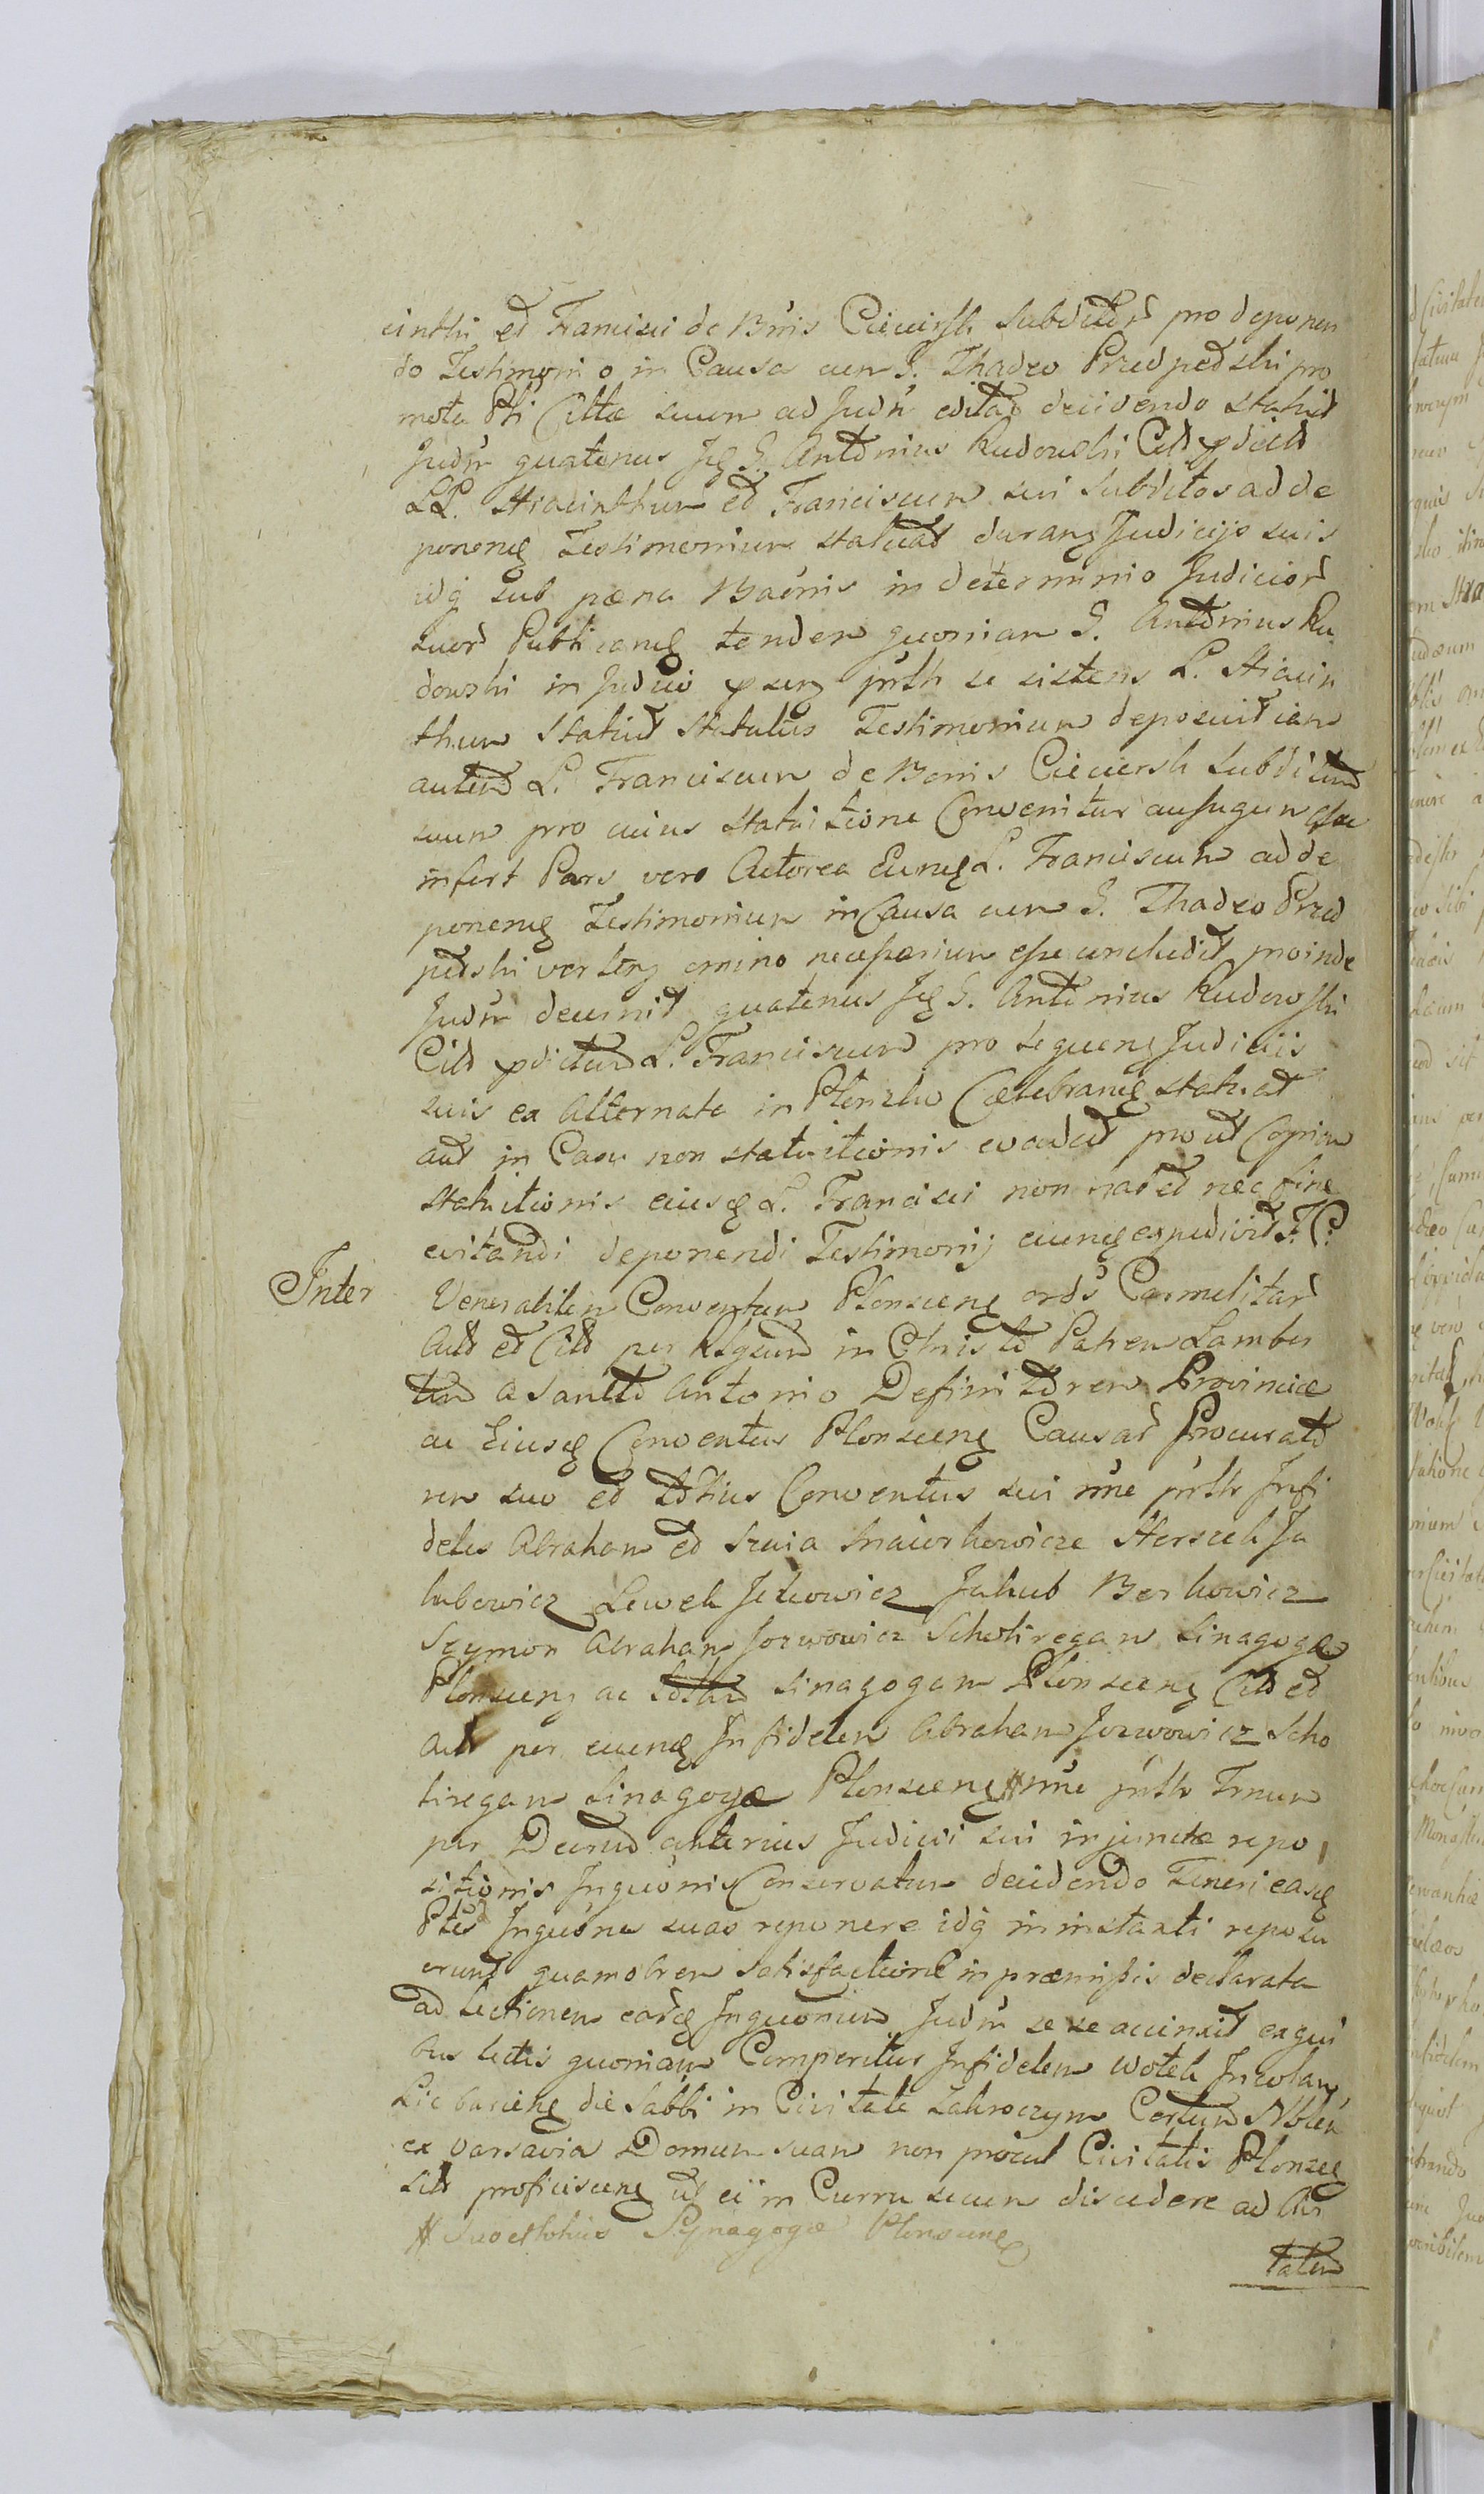 cinthi et Francisci de Bnis Cieciersk Subditor pro deponen
do Testimonio in Causa cum G. Thadeo Przedpełski pro
mota Pti Citta suum ad Judm editas decidendo statuit
Judm quatenus Jdę G. Antonius Rudowski Citt pdictt
LL. Hiacinthum et Franciscum sui Subditos ad de
ponenę Testimonium statuat duranę Judicijs suis
idq sub pæna Baónis in determinio Judicior
suor Publicanę tenden quoniam G. Antonius Ru
dowski in Judicio psenę jnth se sistens L. Hiacin
thum Statuit Statutus Testimonium deposuit iam
autem L. Franciscum de Bonis Cieciersk Subditum
suum pro cuius statuitione Convenitur aufugum esse
infert Pars vero Actorea Eunę L. Franciscum ad de
ponenę Testimonium in Causa cum G. Thadeo Przed
pełski vertenę omino necessarium esse concludit proinde
Judm decernit quatenus Jdę G. Antonius Rudowski
Citt pdictum L. Franciscum pro sequenę Judiciis
suis ex Alternata in Płonsko Celebranę statuat
aut in Casu non statuitionis evadat prout Copiam
statuitionis eiusdę L. Francisci non habet nec fine
evitandi deponendi Testimonij eumę expedivit J. C.
Inter Venerabilem Conventum Plonscenę ords Carmelitar
Actt et Citt per Rlgsum in Christo Patrem Lamber
tum a Sancto Antonio Definitorem Provinciæ
ac Eiusdę Conventus Plonscenę Causar Procurato
rem suo et totius Conventus sui nne jnth Infi
deles Abraham et Szuia Maiorkowicze Herszek Ja
kubowicz Lewek Jckowicz Jakub Berkowicz
Szymon Abraham Jozwowicz Scholiregam Sinagogæ
Plonscenę ac totam Sinagogam Plonscenę Citt et
Actt per eumę Infidelem Abraham Jozwowicz Scho
liregam Sinagogæ Plonscenę # nne jnth Trnum
per Decrum anterius Judicii sui injunctæ repo
sitionis Inquonis Conservatum decidendo Teneri easdę
Ptes Inquone suas reponere idq in instanti reposu
erunt quamobrem satisfactione in præmissis declarata
ad lectionem eardę Inquonum Judm sese accinxit ex qui
bus lectis quoniam Comperitur Infidelem Wolek Incolam
die Sabbi in Civitate Zakroczym Certum Nblem
ex Varsavia Domum suam non procul Civitatis Plonscę
sitt proficiscenę ut ei in Curru secum discedere ad Civi
# suo et totius Synagogæ Plonscenę
tatem